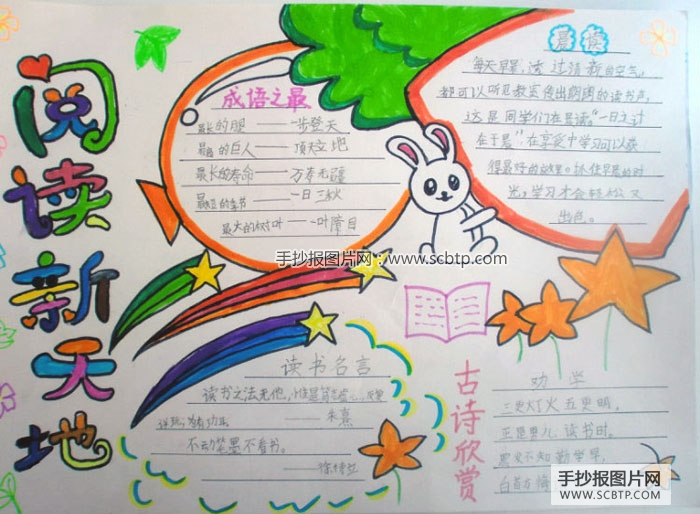 阅读新天地
成语之最
最长的腿——一步登天
最高的巨人——顶天立地
最长的寿命——万寿无疆
最短的季节——一日三秋
最大的树叶——一叶障目
晨读
每天早晨,透过清新的空气,
都可以听见教室传出朗朗的读书声,
这是同学们在晨读。“一日之计
在于晨”在享受中学习可以获
得最好的效果。抓住早晨的时
光,学习才会轻松又
出色。
手抄报图片网:www.scbtp.com
读书名言
读书之法无他,惟是笃志虚心,反复
详玩,为有功耳
——朱熹
不动笔墨不看书。
——徐特立
古诗欣赏
劝学
三更灯火五更明,
正是男儿读书时。
黑发不知勤学早,
白首方悔
手抄报图片网
WWW.SCBTP.COM